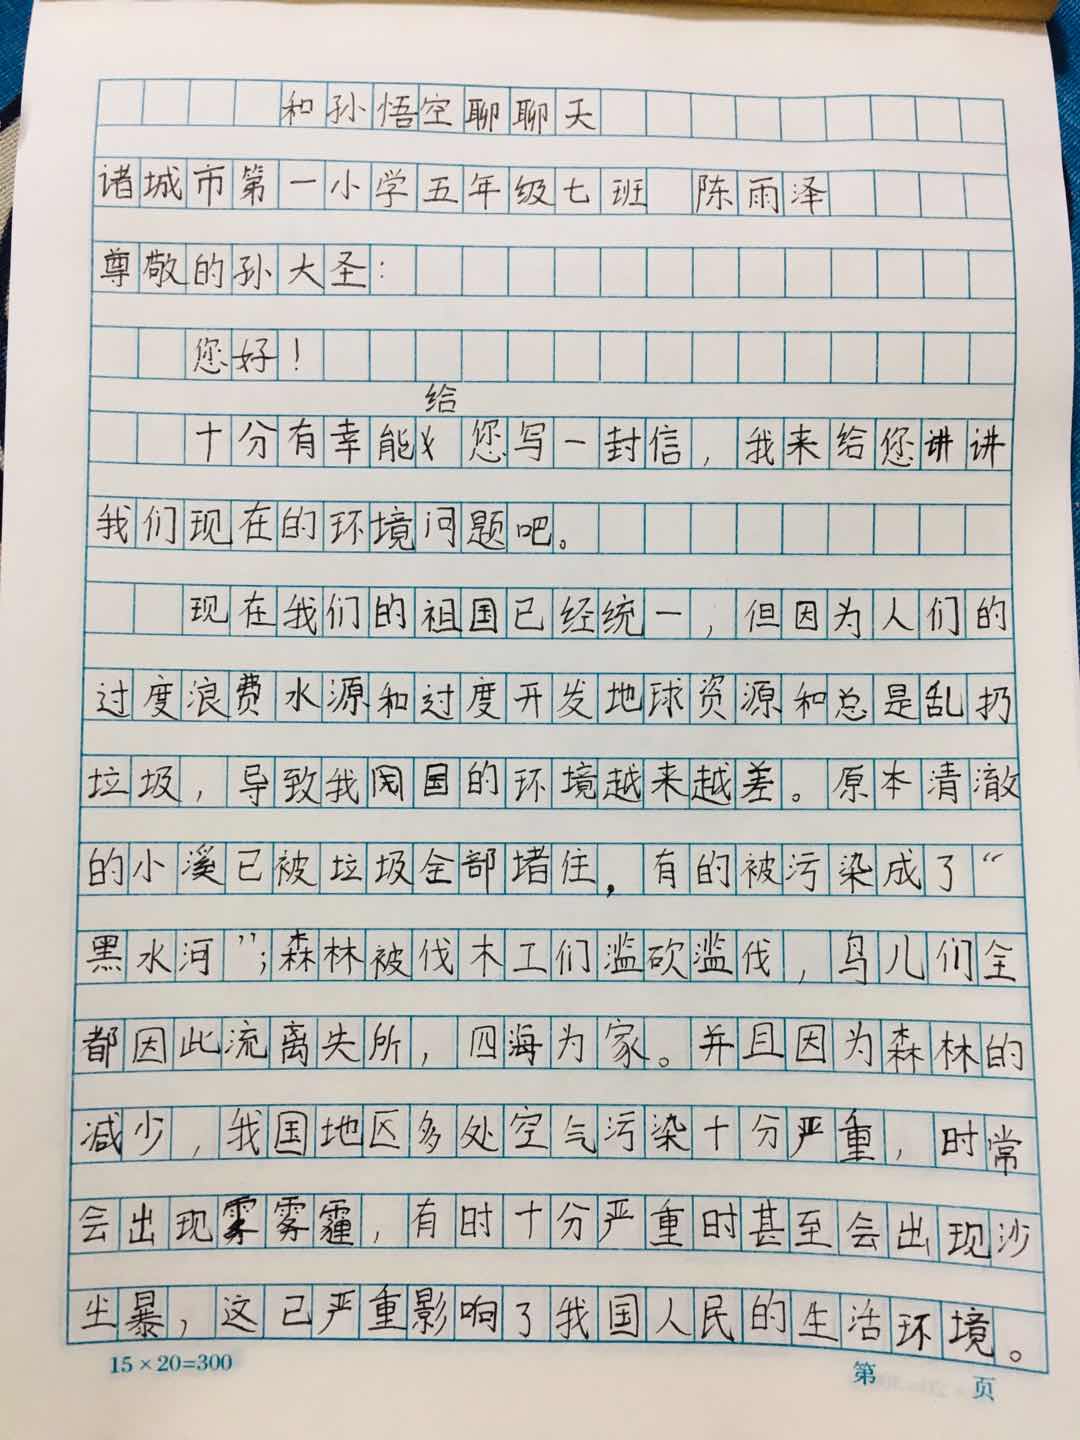 和孙悟空聊聊天
诸城市第一小学五年级七班 陈雨泽
尊敬的孙大圣：
您好！
给
十分有幸能 您写一封信，我来给您讲讲
我们现在的环境问题吧。
现在我们的祖国已经统一，但因为人们的
过度浪费水源和过度开发地球资源和总是乱扔
垃圾，导致我国的环境越来越差。原本清澈
的小溪已被垃圾全部堵住，有的被污染成了“
黑水河”；森林被伐木工们滥砍滥伐，鸟儿们全
都因此流离失所，四海为家。并且因为森林的
减少，我国地区多处空气污染十分严重，时常
会出现雾霾，有时十分严重时甚至会出现沙
尘暴，这已严重影响了我国人民的生活环境。
15×20=300
第 页